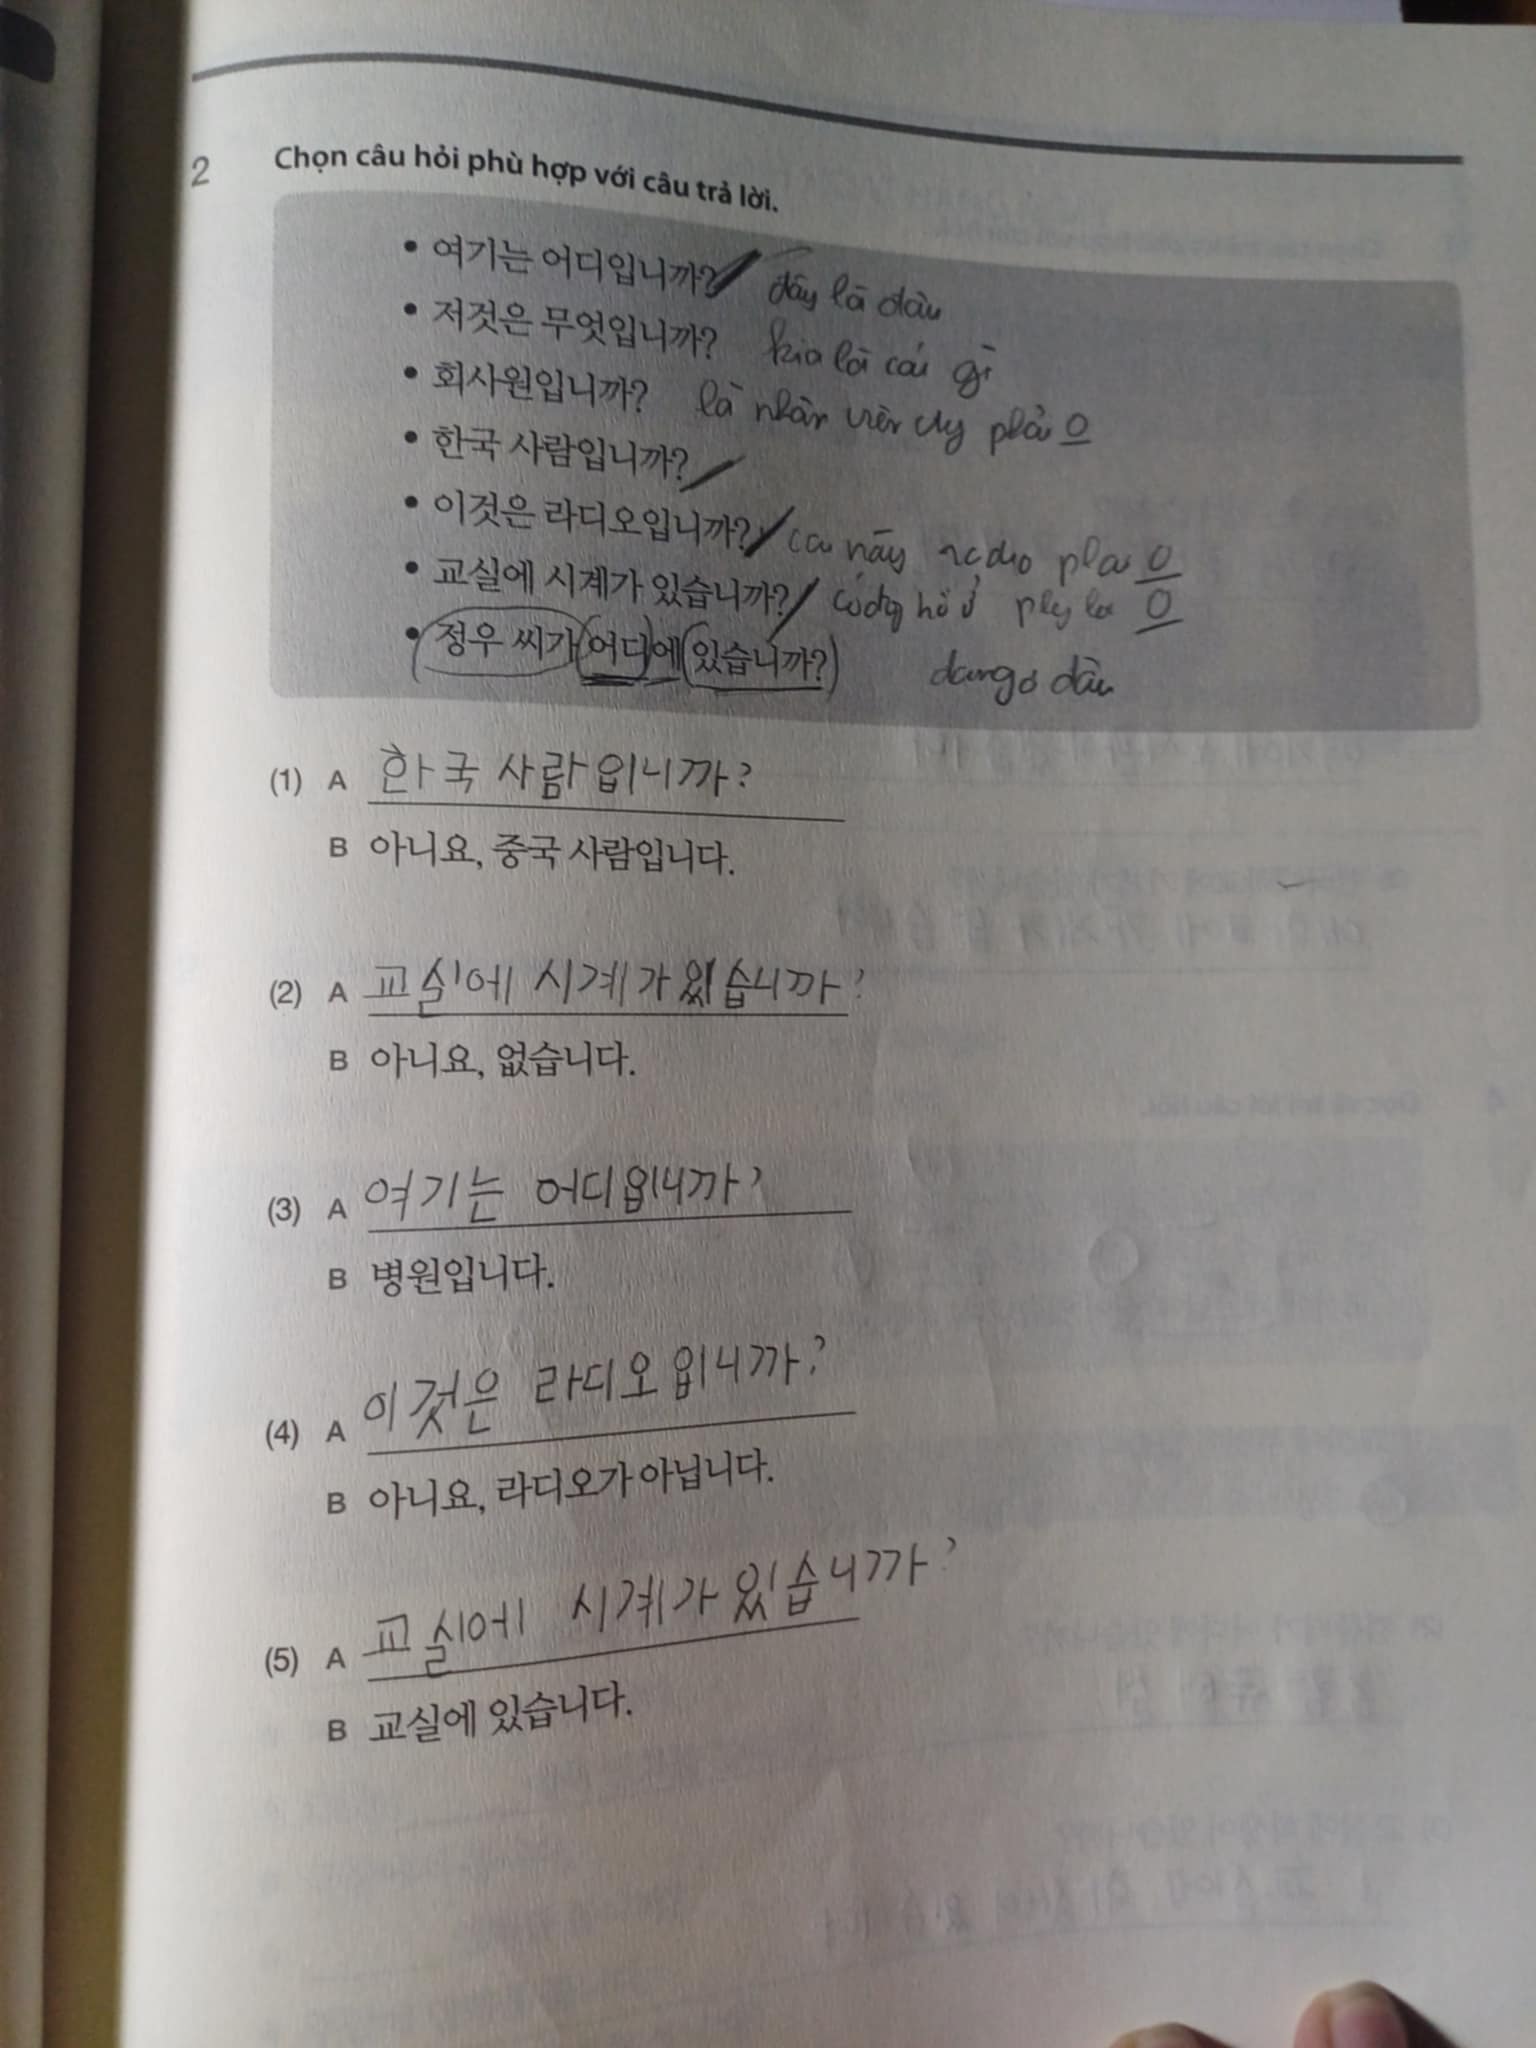 2 Chọn câu hỏi phù hợp với câu trả lời.
• 여기는 어디입니까? đây là đâu
• 저것은 무엇입니까? kia là cái gì
• 회사원입니까? là nhân viên cty phải 0
• 한국 사람입니까?
• 이것은 라디오입니까? cái này radio phải 0
• 교실에 시계가 있습니까? có đồng hồ ở 0
• 정우 씨가 어디에 있습니까? đang ở đâu
(1) A 한국 사람입니까?
B 아니요, 중국 사람입니다.
(2) A 교실에 시계가 있습니까?
B 아니요, 없습니다.
(3) A 여기는 어디입니까?
B 병원입니다.
(4) A 이것은 라디오입니까?
B 아니요, 라디오가 아닙니다.
(5) A 교실에 시계가 있습니까?
B 교실에 있습니다.